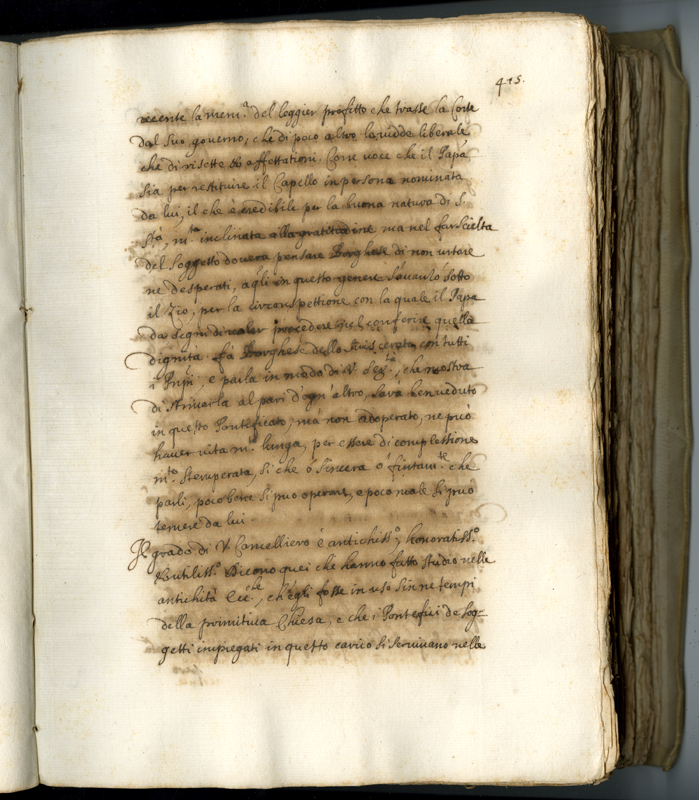 415.
recente la mem.a del leggier profitto che trasse la Corte
dal suo governo; che di poco altro la vidde liberale
che di risette et effettationi. Corre voce che il Papa
sia per restituire il Capello in persona nominata
da lui, il che è credibile per la buona natura di S.
Stà, m.to inclinata alla gratitudine ma nel far scielta
del soggetto doverà pensare Borghese di non urtare
ne desperati, agli in questo genere savanzò sotto
il Zio, per la circonspettione con la quale il Papa
da segni di voler procedere nel conferire quella
dignità. fà Borghese dello sviscerato con tutti
i Prnpi, e parla in modo di V. Ecc.za, che mostra
di stimarla al pari d'ogn'altro, sarà ben veduto
in questo Ponteficato, mà non adoperato, ne può
haver vita m.to lunga, per essere di complessione
m.to stemperata, si che ò sincera ò fintam.te che
parli, poco bene si può operare, e poco male si può
temere da lui
Il grado di V. Cancelliero è antichiss.o, honoratiss.o
& utiliss.o Dicono quei che hanno fatto studio nelle
antichità Ecc.he, ch'egli fosse in uso sin ne tempi
della primitiva Chiesa, e che i Pontefici de sog-
getti impiegati in questo carico si servivano nelle